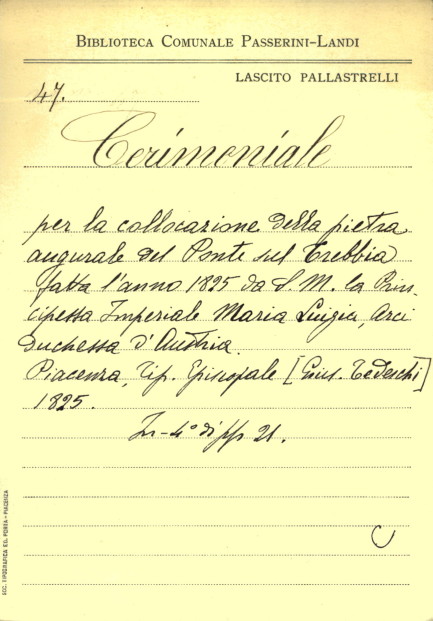 BIBLIOTECA COMUNALE PASSERINI-LANDI
LASCITO PALLASTRELLI
47.
Cerimoniale
per la collocazione della pietra
augurale del Ponte sul Trebbia
fatta l'anno 1825 da S. M. la Prin-
cipessa Imperiale Maria Luigia, Arci
duchessa d'Austria.
Piacenza, Tip. Episcopale [Gius. Tedeschi]
1825.
In-4° di pp 21.
C
SOC. TIPOGRAFICA ED. PORTA - PIACENZA